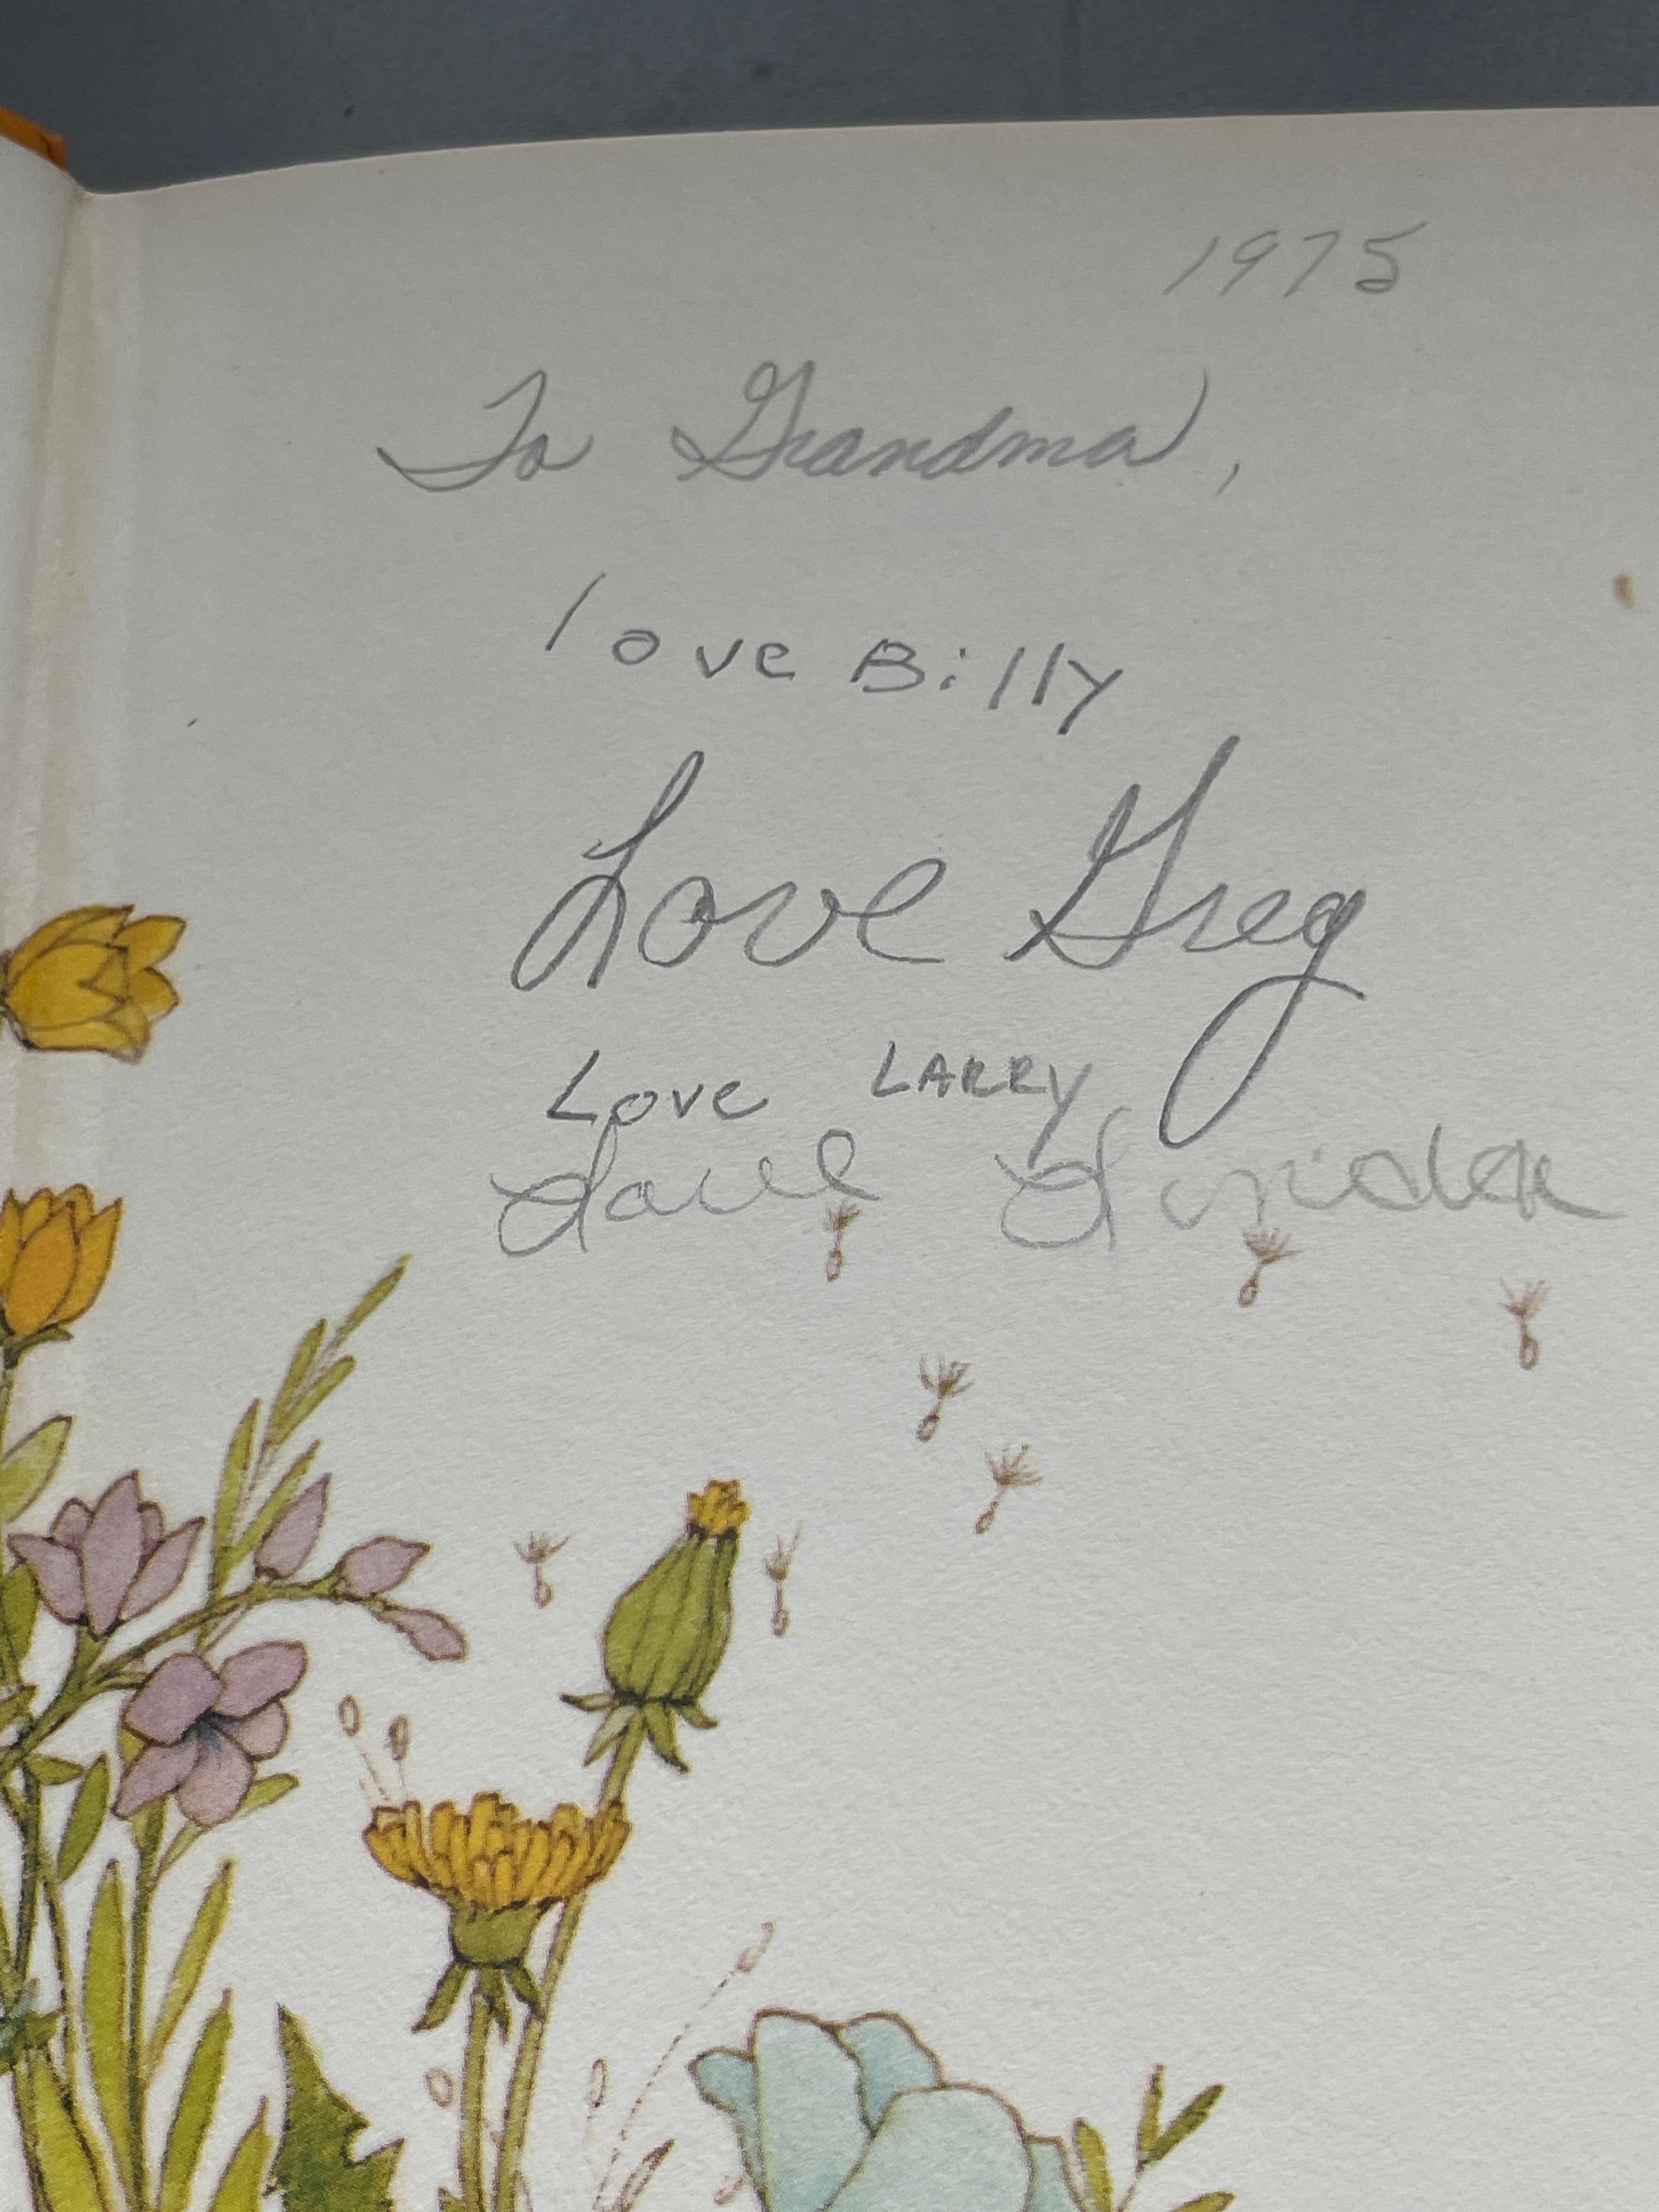 1975
To Grandma,
love Billy
Love Greg
Love LARRY
Love Linda